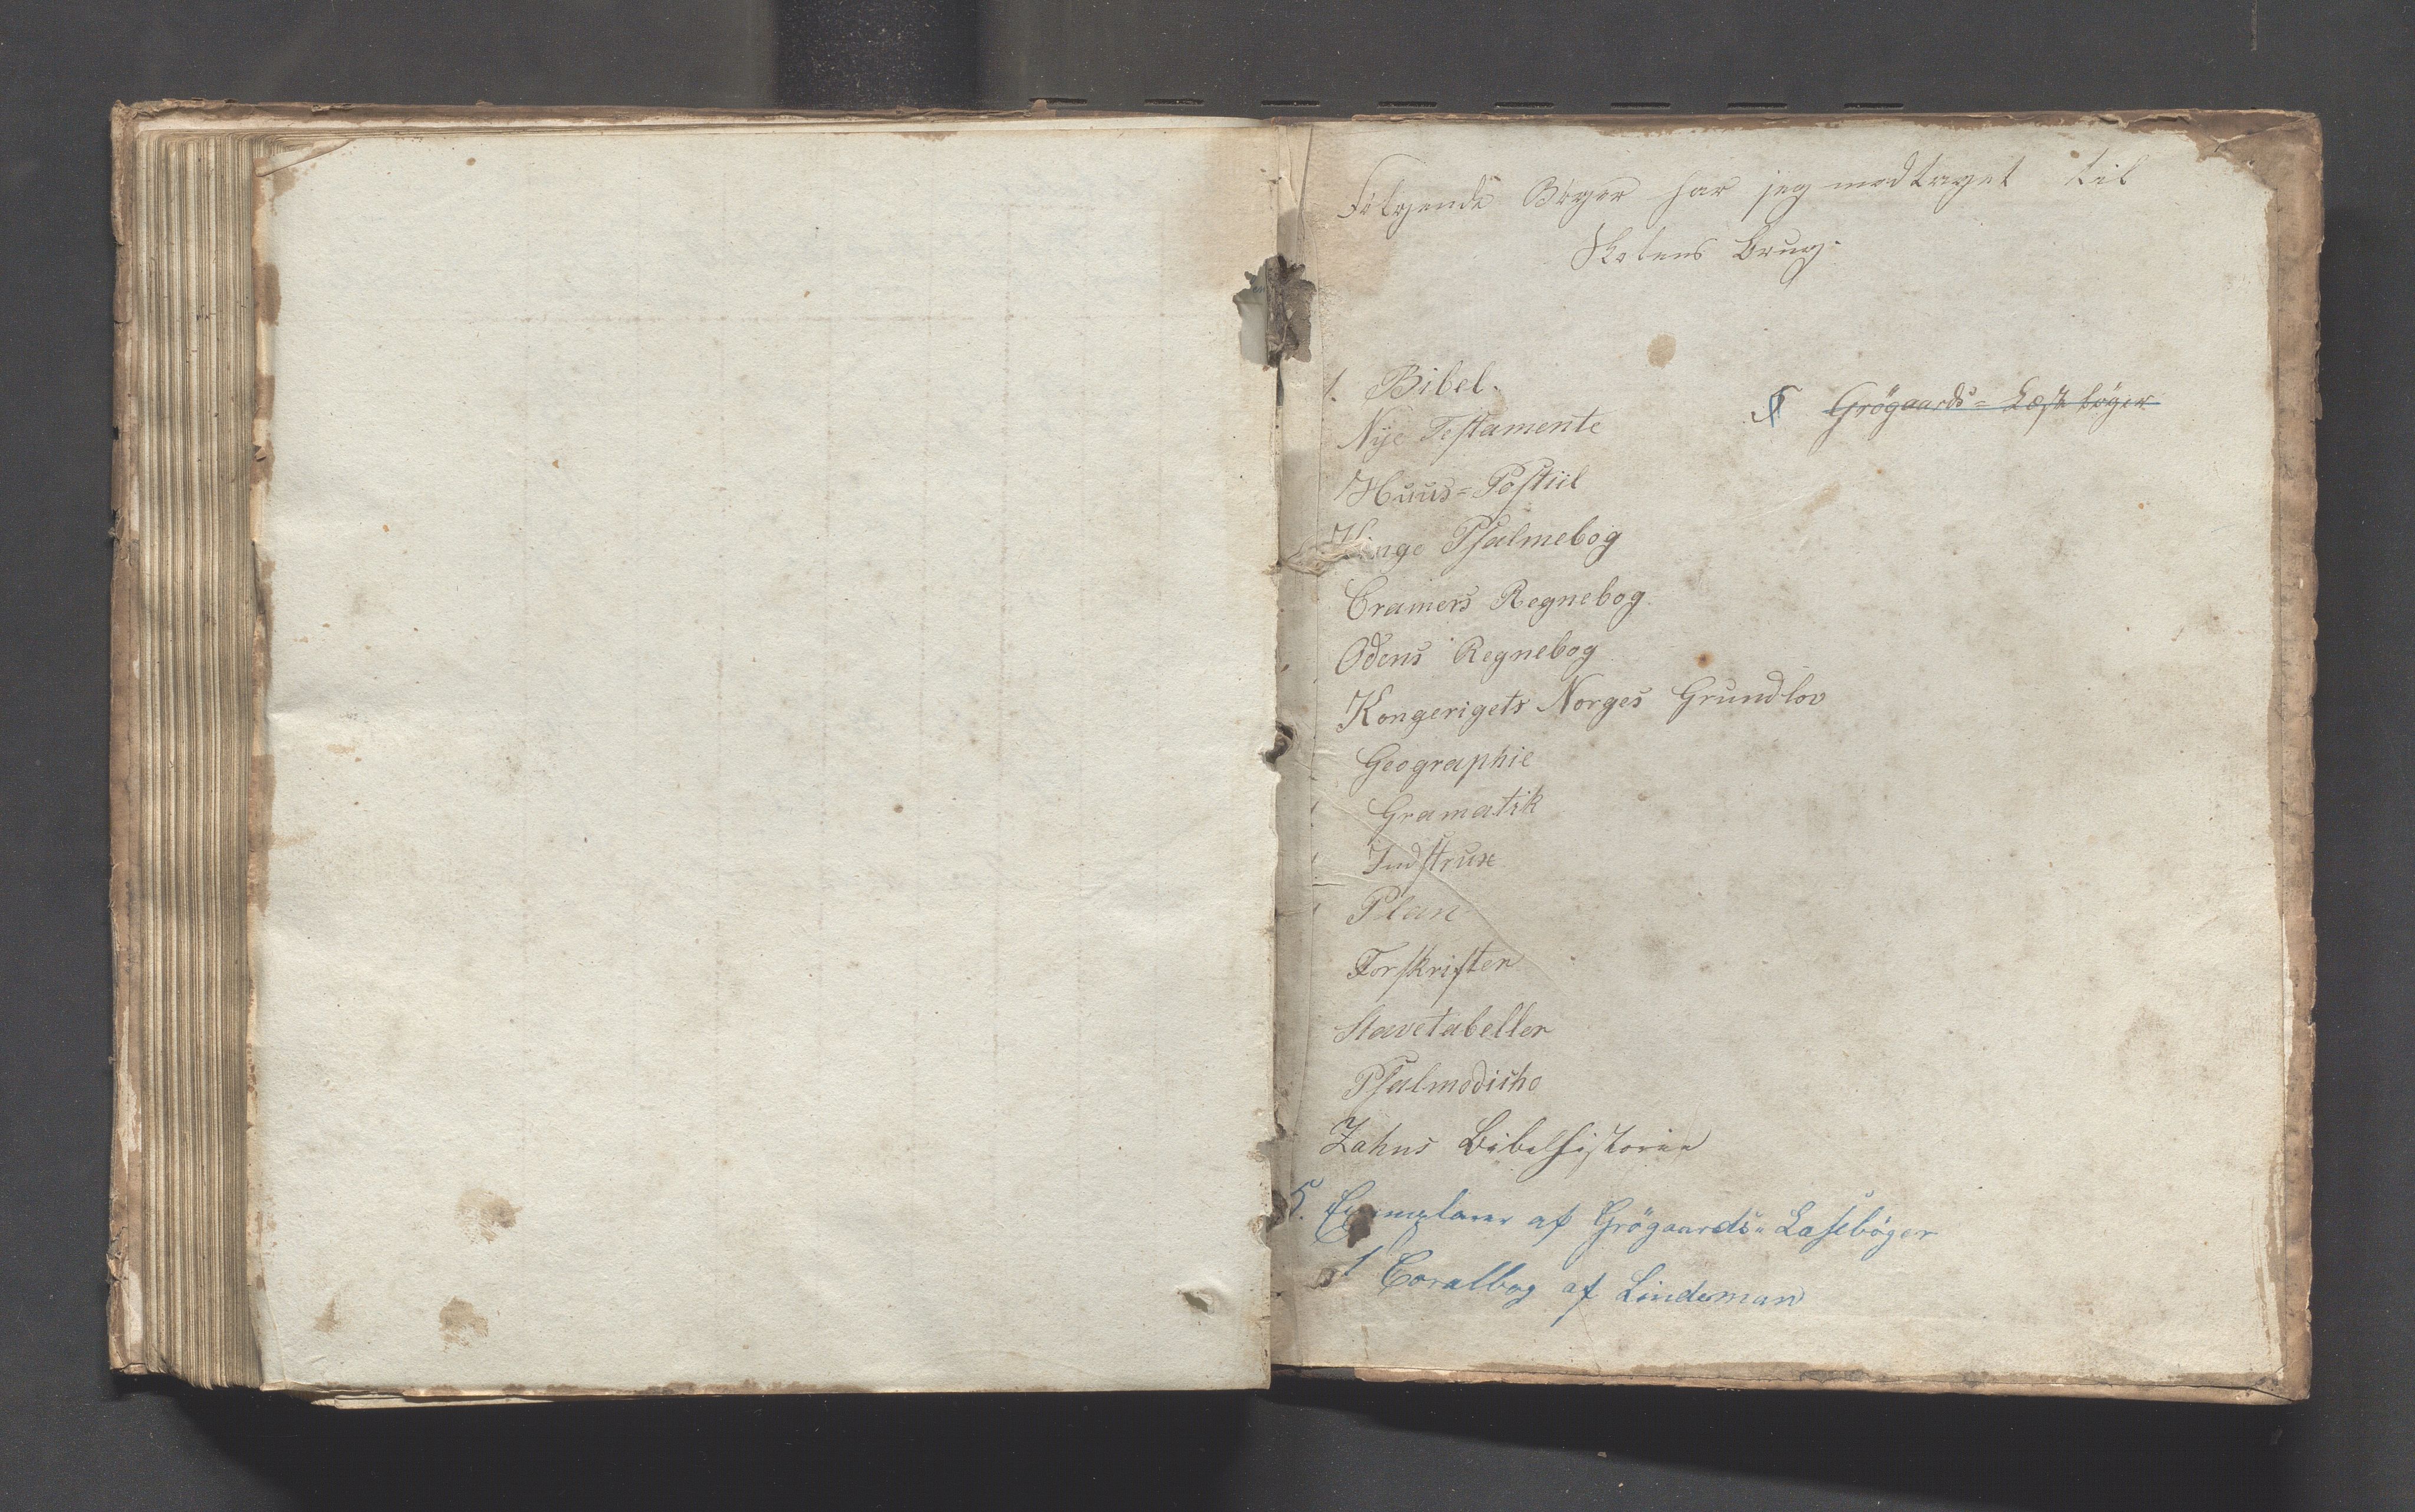 Følgende Bøger har jeg modtaget til
Skolens Brug.
1. Bibel.
Nye Testamente
Huus=Postiil
Kingo Psalmebog
Cramers Regnebog
Odens Regnebog
Kongerigets Norges Grundlov
Geographie
Gramatik
Indstrux
Plan
Forskrifter
Stavetabeller
Psalmodicho
Zahns Bibelhistorie
5. Exemplarer af Grögaards= Lasebøger
1 Coralbog af Lindeman
5 Grögaards= Læsebøger